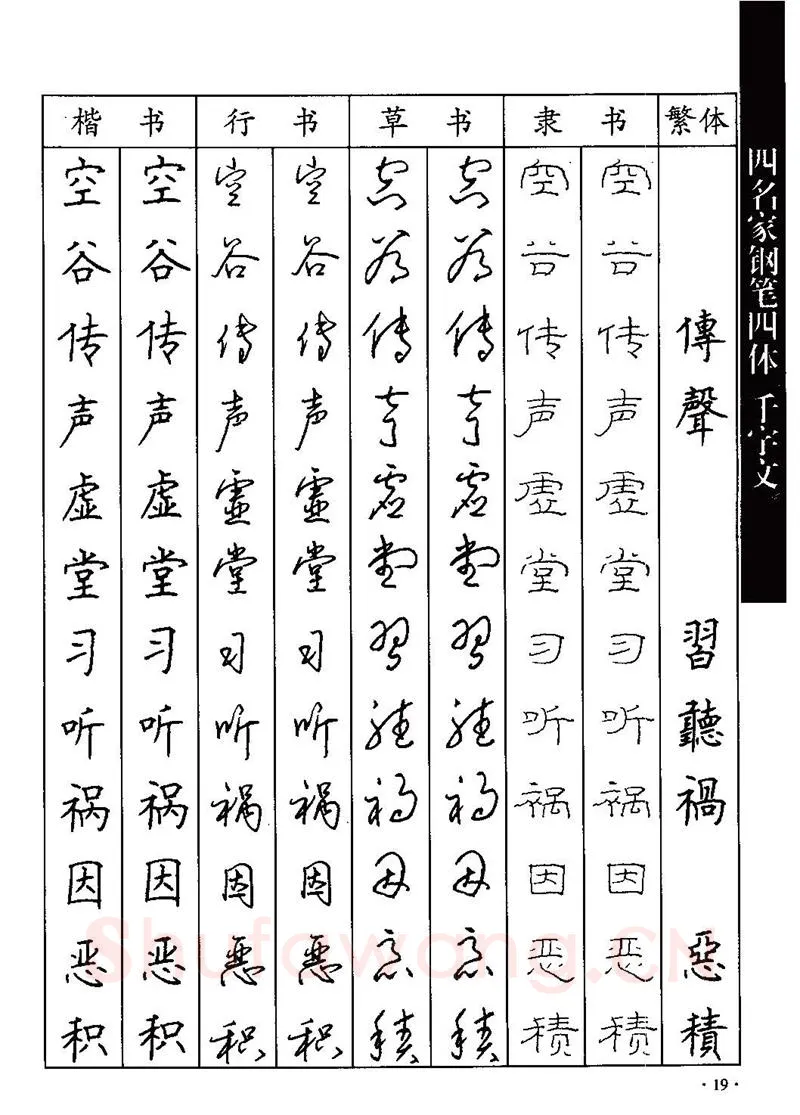 楷书 行书 草书 隶书 繁体
空 空 空 空 空 空 空 空
谷 谷 谷 谷 谷 谷 谷 谷
传 传 传 传 传 传 传 传 傳
声 声 声 声 声 声 声 声 聲
虚 虚 虚 虚 虚 虚 虚 虚
堂 堂 堂 堂 堂 堂 堂 堂
习 习 习 习 習 習 习 习 習
听 听 听 听 聽 聽 听 听 聽
祸 祸 祸 祸 祸 祸 祸 祸 禍
因 因 因 因 因 因 因 因
恶 恶 恶 恶 恶 恶 恶 恶 惡
积 积 积 积 積 積 積 積 積
四名家钢笔四体 千字文
Shufawang.CN
·19·